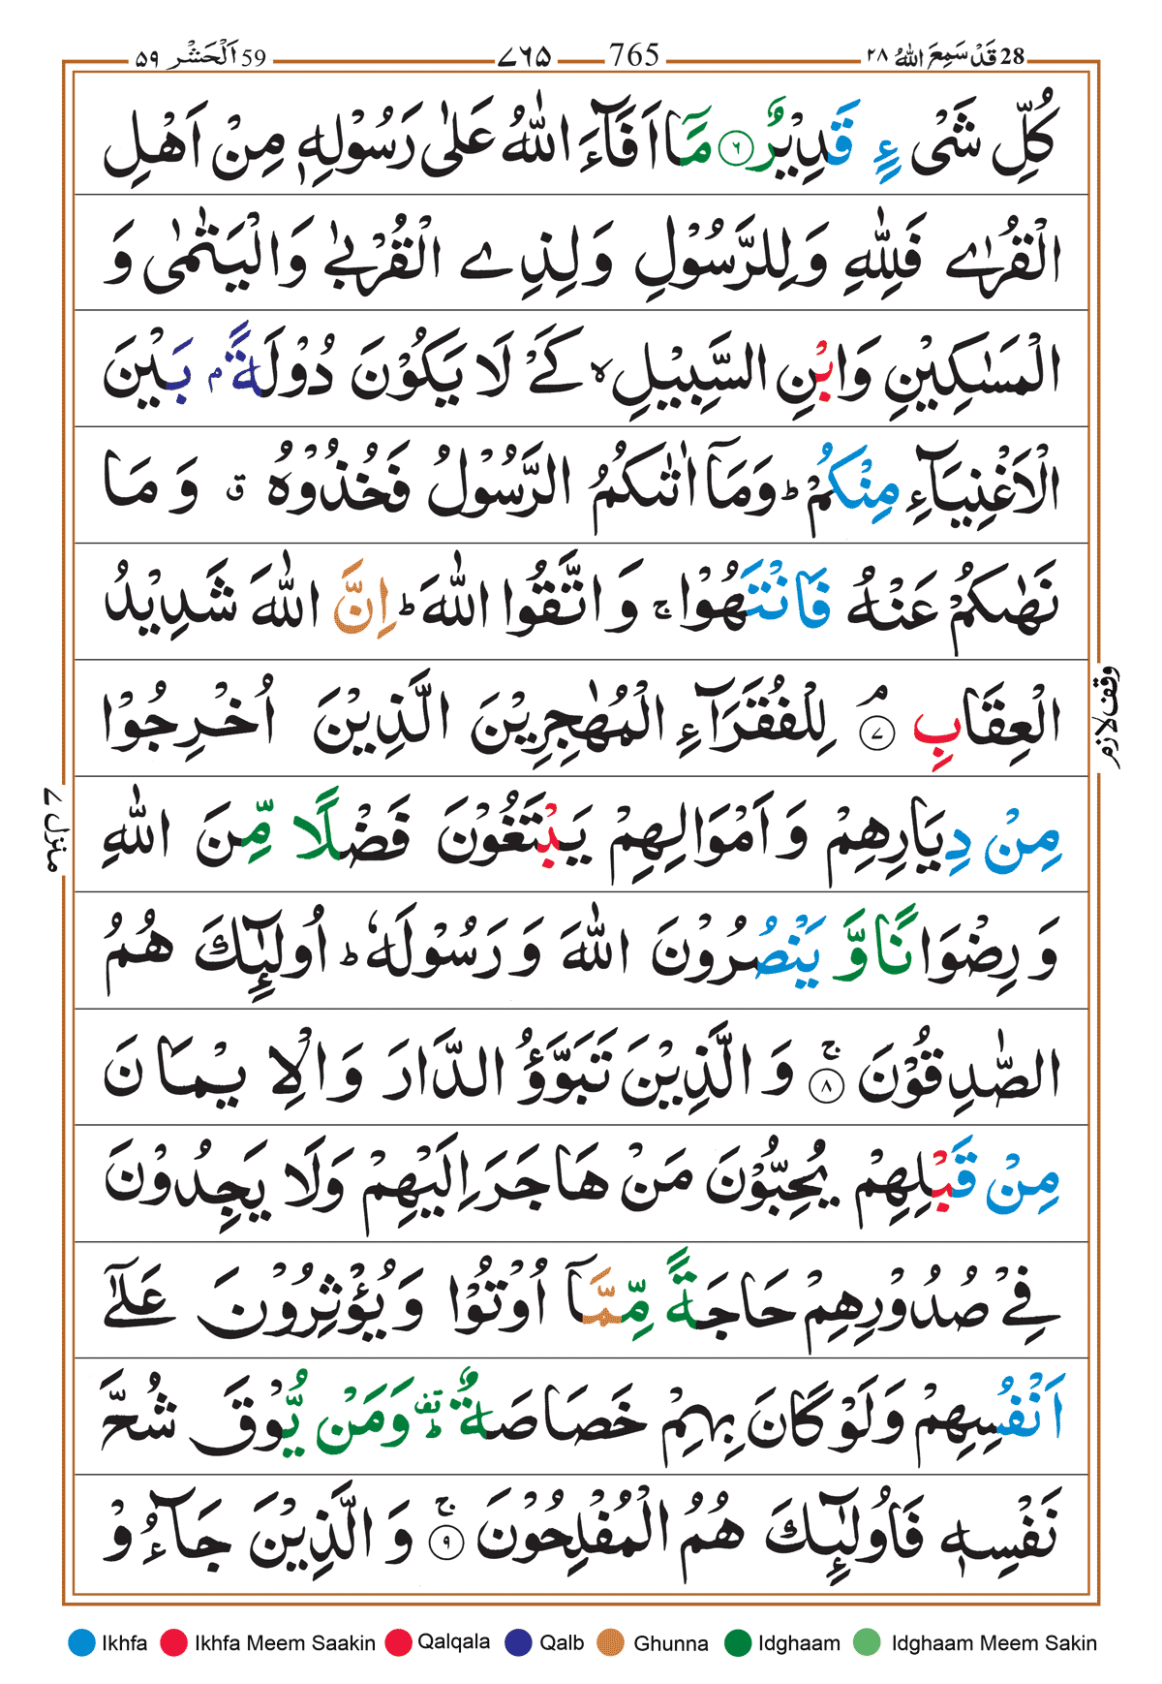 28 قَدْ سَمِعَ اللّٰهُ ٢٨ 765 ٧٦٥ 59 اَلْحَشْر ٥٩
كُلِّ شَىْءٍ قَدِيْرٌ ۝٦ مَاۤ اَفَآءَ اللّٰهُ عَلٰى رَسُوْلِهٖ مِنْ اَهْلِ
الْقُرٰى فَلِلّٰهِ وَلِلرَّسُوْلِ وَلِذِى الْقُرْبٰى وَالْيَتٰمٰى وَ
الْمَسٰكِيْنِ وَابْنِ السَّبِيْلِ ۙ كَىْ لَا يَكُوْنَ دُوْلَةًۢ بَيْنَ
الْاَغْنِيَآءِ مِنْكُمْ ؕ وَمَاۤ اٰتٰىكُمُ الرَّسُوْلُ فَخُذُوْهُ ۗ وَ مَا
نَهٰىكُمْ عَنْهُ فَانْتَهُوْا ۚ وَ اتَّقُوا اللّٰهَ ؕ اِنَّ اللّٰهَ شَدِيْدُ
الْعِقَابِ ۘ ۝٧ لِلْفُقَرَآءِ الْمُهٰجِرِيْنَ الَّذِيْنَ اُخْرِجُوْا
وقف لازم
مِنْ دِيَارِهِمْ وَ اَمْوَالِهِمْ يَبْتَغُوْنَ فَضْلًا مِّنَ اللّٰهِ
منزل ٧
وَ رِضْوَانًا وَّ يَنْصُرُوْنَ اللّٰهَ وَ رَسُوْلَهٗ ؕ اُولٰٓئِكَ هُمُ
الصّٰدِقُوْنَ ۚ ۝٨ وَ الَّذِيْنَ تَبَوَّؤُ الدَّارَ وَ الْاِيْمَانَ
مِنْ قَبْلِهِمْ يُحِبُّوْنَ مَنْ هَاجَرَ اِلَيْهِمْ وَلَا يَجِدُوْنَ
فِىْ صُدُوْرِهِمْ حَاجَةً مِّمَّاۤ اُوْتُوْا وَيُؤْثِرُوْنَ عَلٰٓى
اَنْفُسِهِمْ وَلَوْ كَانَ بِهِمْ خَصَاصَةٌ ؕ قف وَمَنْ يُّوْقَ شُحَّ
نَفْسِهٖ فَاُولٰٓئِكَ هُمُ الْمُفْلِحُوْنَ ۚ ۝٩ وَ الَّذِيْنَ جَآءُوْ
Ikhfa Ikhfa Meem Saakin Qalqala Qalb Ghunna Idghaam Idghaam Meem Sakin